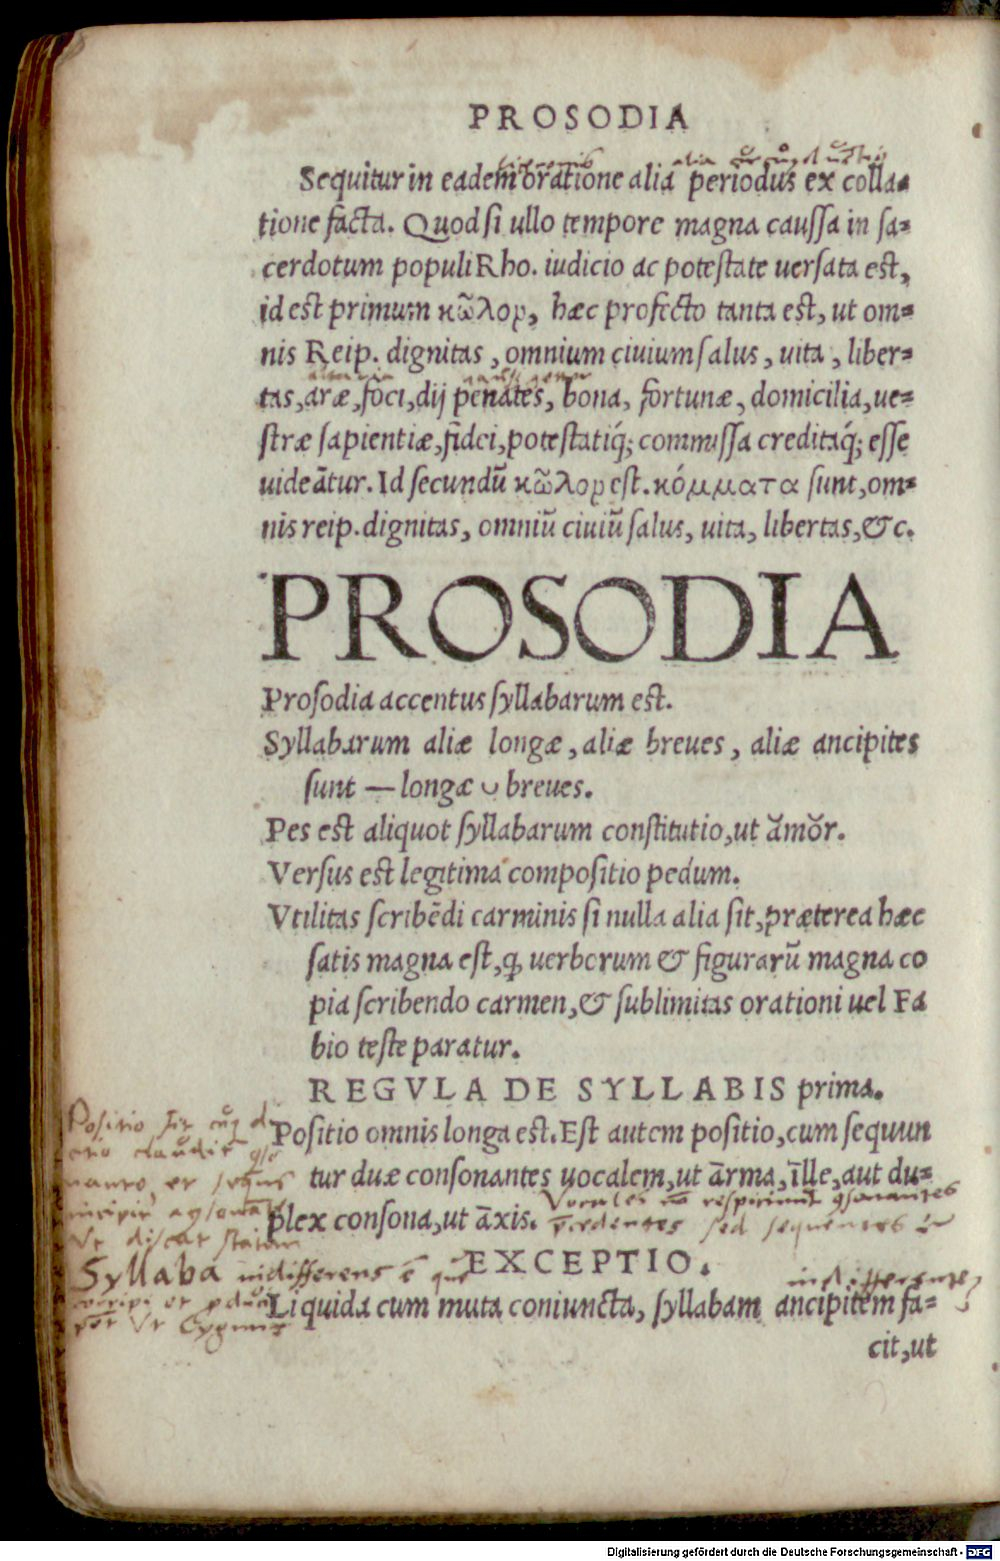 PROSODIA
Sequitur in eadem oratione alia periodus ex colla-
tione facta. Quod si ullo tempore magna caussa in sa-
cerdotum populi Rho. iudicio ac potestate uersata est,
id est primum κῶλορ, hæc profecto tanta est, ut om-
nis Reip. dignitas, omnium ciuium salus, uita, liber-
tas, aræ, foci, dij penates, bona, fortunæ, domicilia, ue-
stræ sapientiæ, fidei, potestatiq́; commissa creditaq́; esse
uideātur. Id secundū κῶλορ est. κόμματα sunt, om-
nis reip. dignitas, omniū ciuiū salus, uita, libertas, &c.
PROSODIA
Prosodia accentus syllabarum est.
Syllabarum aliæ longæ, aliæ breues, aliæ ancipites
sunt — longæ ᴗ breues.
Pes est aliquot syllabarum constitutio, ut ămŏr.
Versus est legitima compositio pedum.
Vtilitas scribēdi carminis si nulla alia sit, præterea hæc
satis magna est, ꝙ uerborum & figurarū magna co
pia scribendo carmen, & sublimitas orationi uel Fa
bio teste paratur.
REGVLA DE SYLLABIS prima.
Positio omnis longa est. Est autem positio, cum sequun
tur duæ consonantes uocalem, ut ārma, īlle, aut du-
plex consona, ut āxis.
Vocales
sed sequentes
EXCEPTIO.
Syllaba indifferens ē
Liquida cum muta coniuncta, syllabam ancipitem fa-
cit, ut
Digitalisierung gefördert durch die Deutsche Forschungsgemeinschaft - DFG